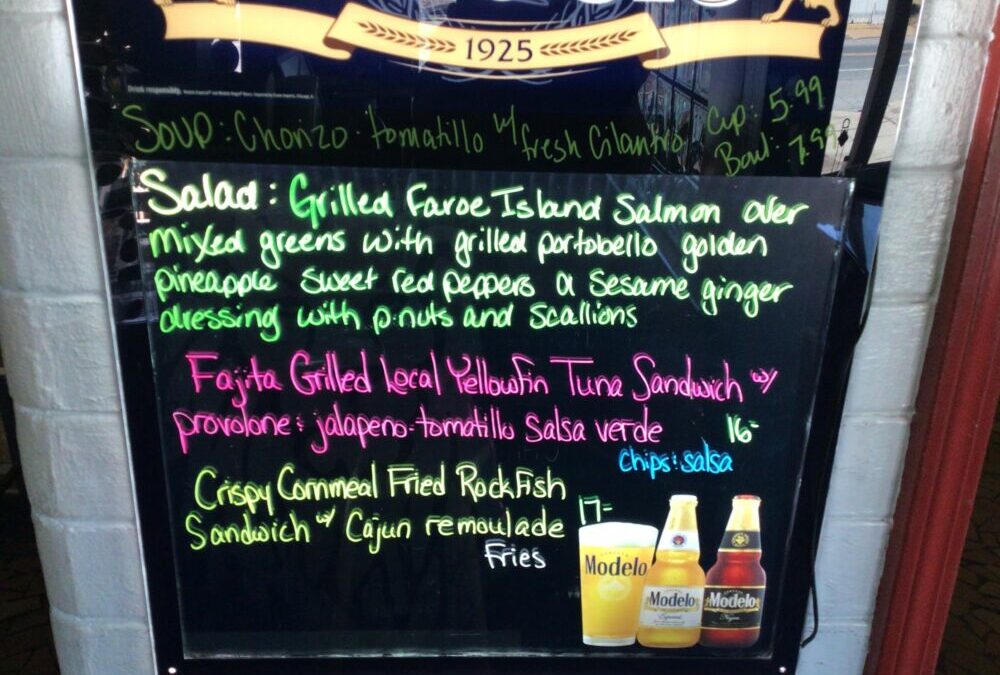 1925
Drink responsibly.
Soup: Chorizo-tomatillo w/ fresh Cilantro Cup: 5.99
Bowl: 7.99
Salad: Grilled Faroe Island Salmon over
mixed greens with grilled portobello golden
pineapple sweet red peppers a sesame ginger
dressing with p.nuts and scallions
Fajita Grilled Local Yellowfin Tuna Sandwich w/
provolone & jalapeno-tomatillo salsa verde 16-
chips & salsa
Crispy Cornmeal Fried RockFish
Sandwich w/ Cajun remoulade 17-
Fries
Modelo
Modelo
Especial
Modelo
Negra